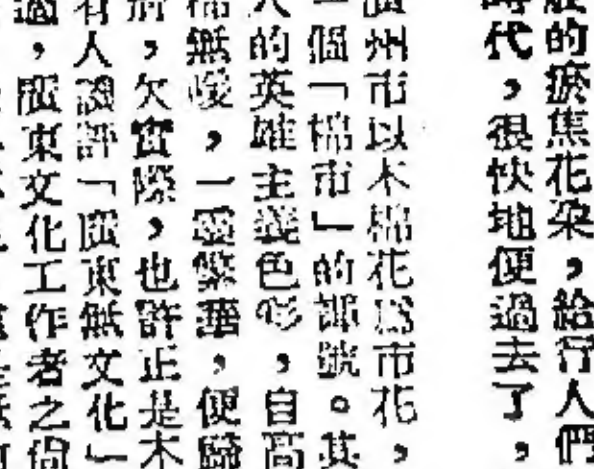 的瘀焦花朵，給行人們
時代，很快地便過去了，
廣州市以木棉花爲市花，
一個「棉市」的諢號。其
的英雄主義色彩，自高
棉無暖，一靈繁華，便歸
，欠實際，也許正是木
有人譏評「廣東無文化」
過，廣東文化工作者之倘